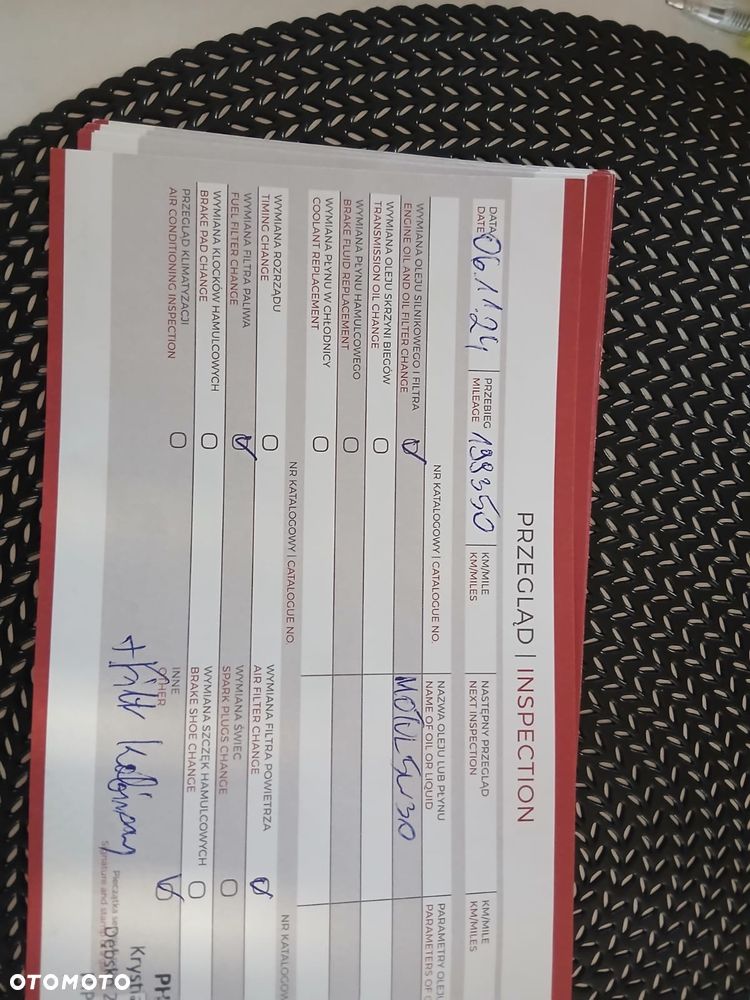 PRZEGLĄD | INSPECTION
DATA
DATE
06.11.24
PRZEBIEG
MILEAGE
199350
KM/MILE
KM/MILES
NASTĘPNY PRZEGLĄD
NEXT INSPECTION
KM/MILE
KM/MILES
NR KATALOGOWY | CATALOGUE NO.
NAZWA OLEJU LUB PŁYNU
NAME OF OIL OR LIQUID
PARAMETRY OLEJU
PARAMETERS OF
WYMIANA OLEJU SILNIKOWEGO I FILTRA
ENGINE OIL AND OIL FILTER CHANGE
MOTUL 5W30
WYMIANA OLEJU SKRZYNI BIEGÓW
TRANSMISSION OIL CHANGE
WYMIANA PŁYNU HAMULCOWEGO
BRAKE FLUID REPLACEMENT
WYMIANA PŁYNU W CHŁODNICY
COOLANT REPLACEMENT
NR KATALOGOWY | CATALOGUE NO.
NR KATALOGOW
WYMIANA ROZRZĄDU
TIMING CHANGE
WYMIANA FILTRA POWIETRZA
AIR FILTER CHANGE
WYMIANA FILTRA PALIWA
FUEL FILTER CHANGE
WYMIANA ŚWIEC
SPARK PLUGS CHANGE
WYMIANA KLOCKÓW HAMULCOWYCH
BRAKE PAD CHANGE
WYMIANA SZCZĘK HAMULCOWYCH
BRAKE SHOE CHANGE
PRZEGLĄD KLIMATYZACJI
AIR CONDITIONING INSPECTION
INNE
OTHER
+ Filtr kabinowy
Pieczątka
Signature and stamp
OTOMOTO